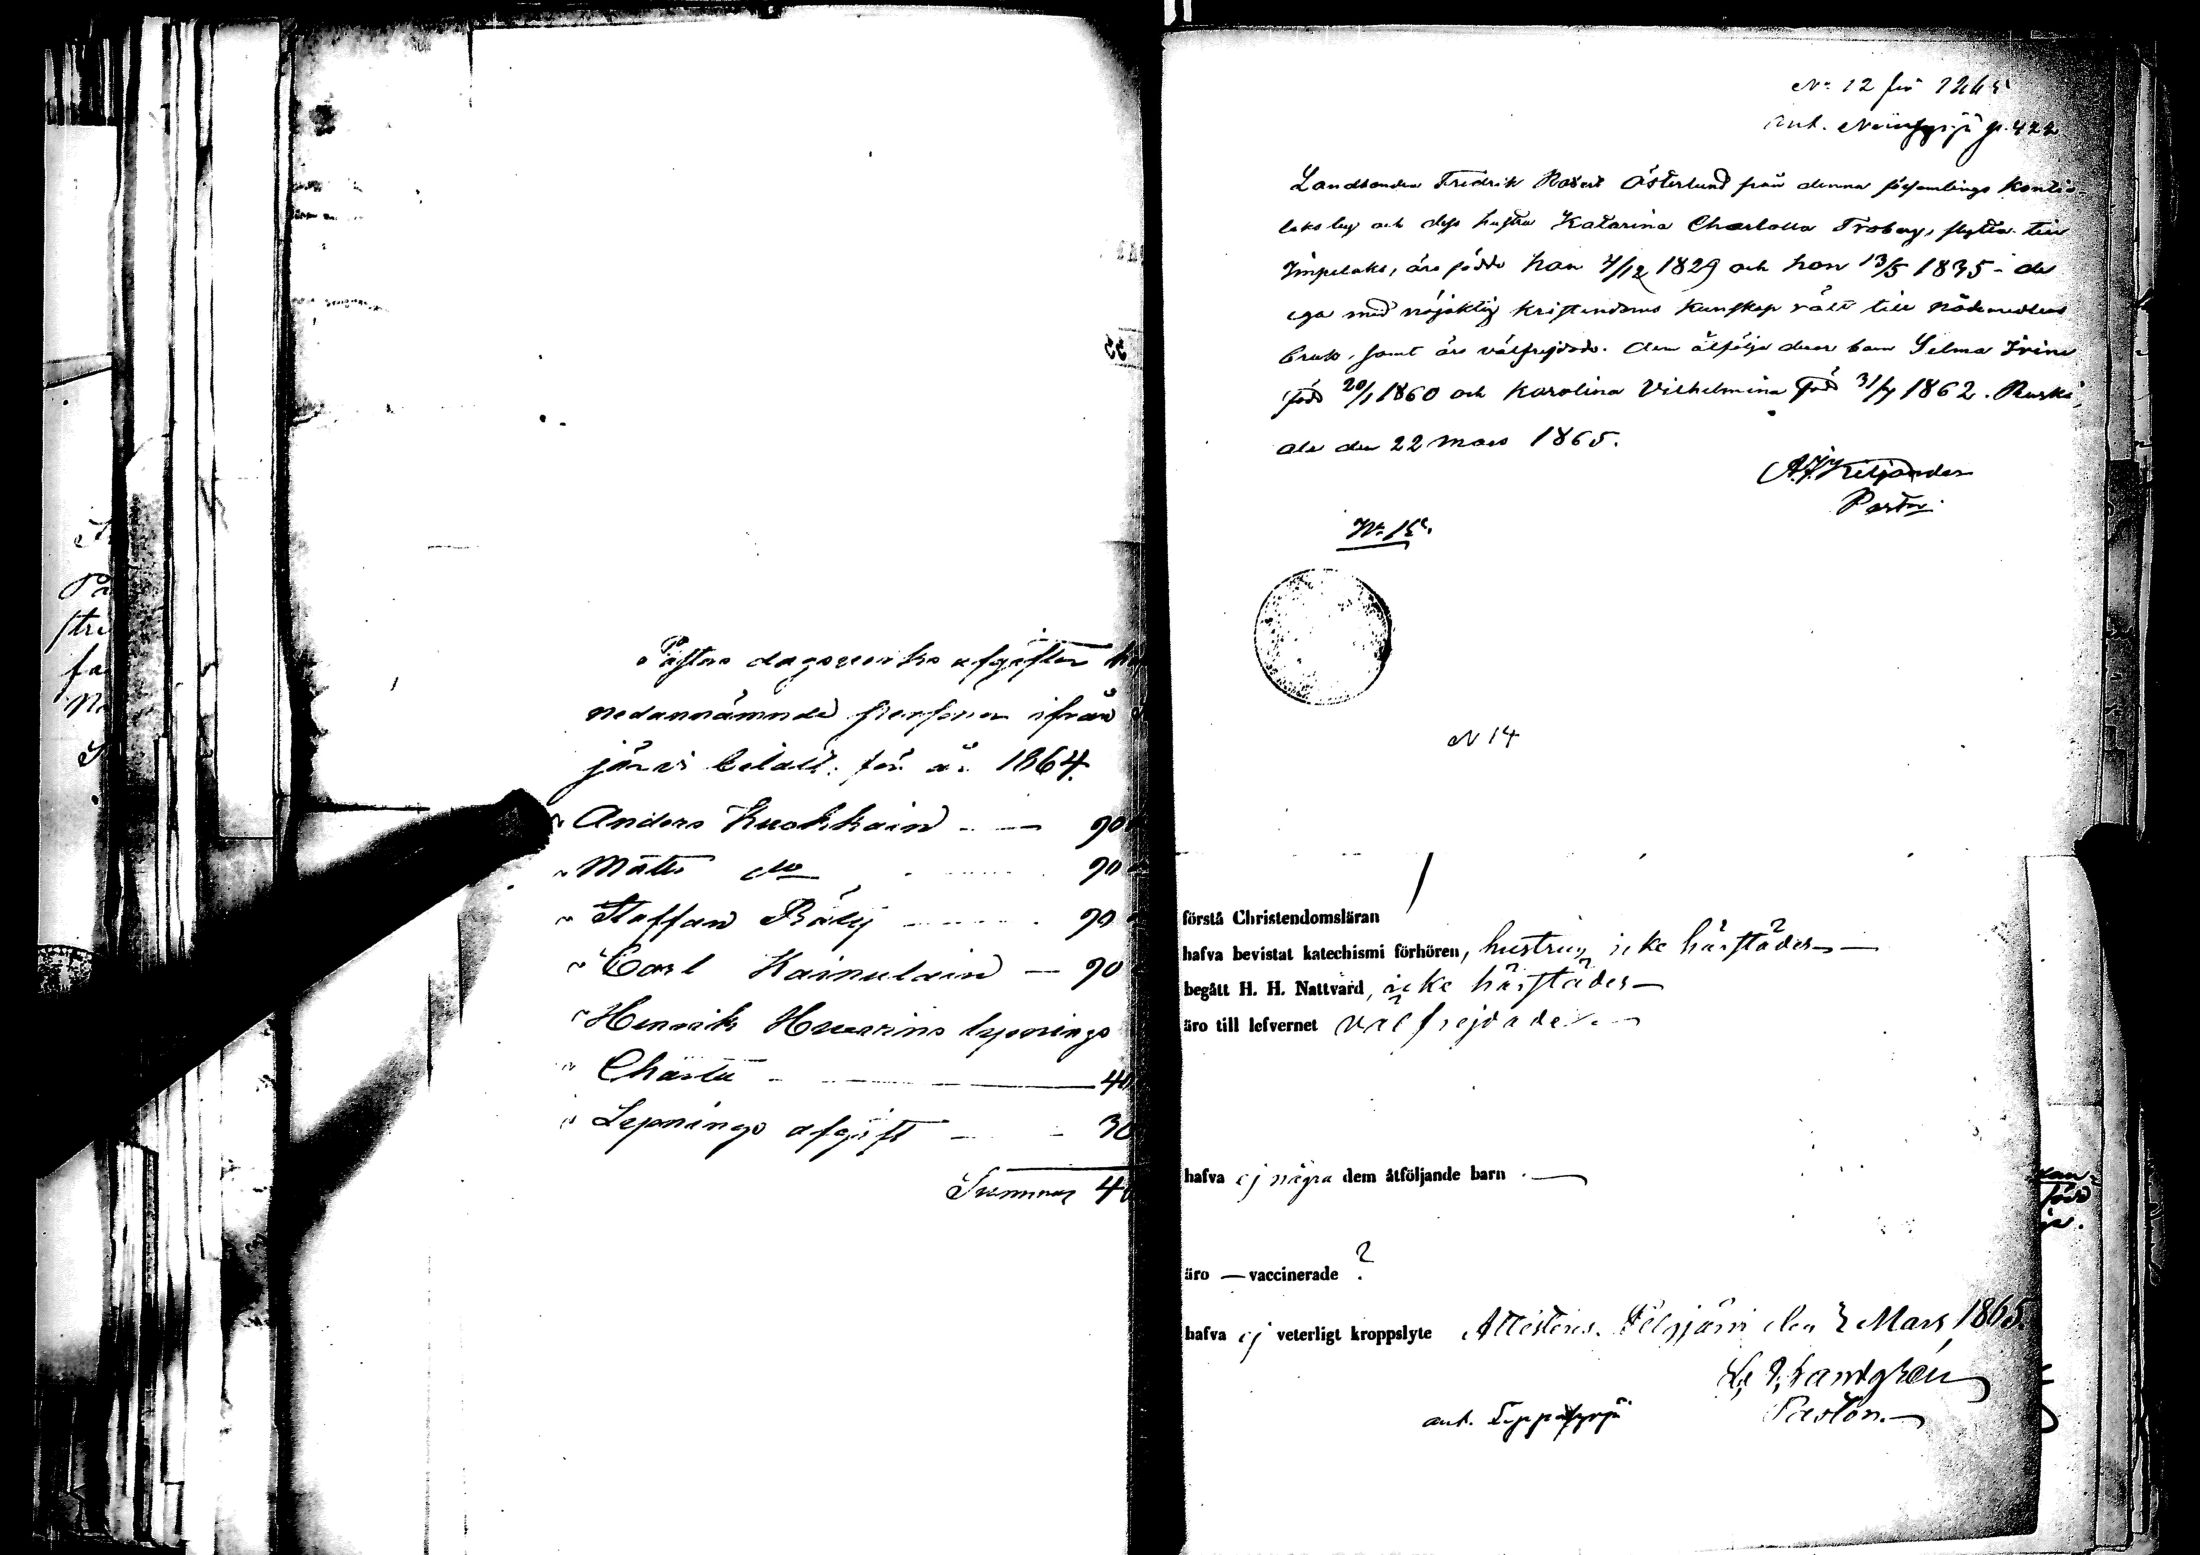 Pastors dagsverks afgifter
nedannämnde personer ifrån
järvi betalt för år 1864.
" Anders Kuokkain 90
" Matts do 90
" Staffan Räty 90
" Carl Kainulain 90
" Henrik
" Charta 40
" Lepnings afgift 30
Summa 4
No 12 för 1865
ant. p. 422
Landbonden Fredrik Robert Österlund från denna församlings Kontio-
laks by och dess hustru Katarina Charlotta Froberg, flytta till
Impilaks, äro födde han 4/12 1829 och hon 13/5 1835 - de
ega med nöjaktig kristendoms kunskap rätt till nådemedlens
bruk, samt äro välfrejdade. Dem åtfölja deras barn Selma Irene
född 20/1 1860 och Karolina Vilhelmina född 31/7 1862. Ruski-
ala den 22 Mars 1865.
A. J. Kiljander
Pastor
No 15
N 14
förstå Christendomsläran
hafva bevistat katechismi förhören, hustrun icke härstädes
begått H. H. Nattvard, icke härstädes
äro till lefvernet välfrejdade
hafva ej några dem åtföljande barn
äro — vaccinerade ?
hafva ej veterligt kroppslyte Attesteras. Pelgjärvi den 3 Mars 1865.
Landgrén
Pastor.
ant.